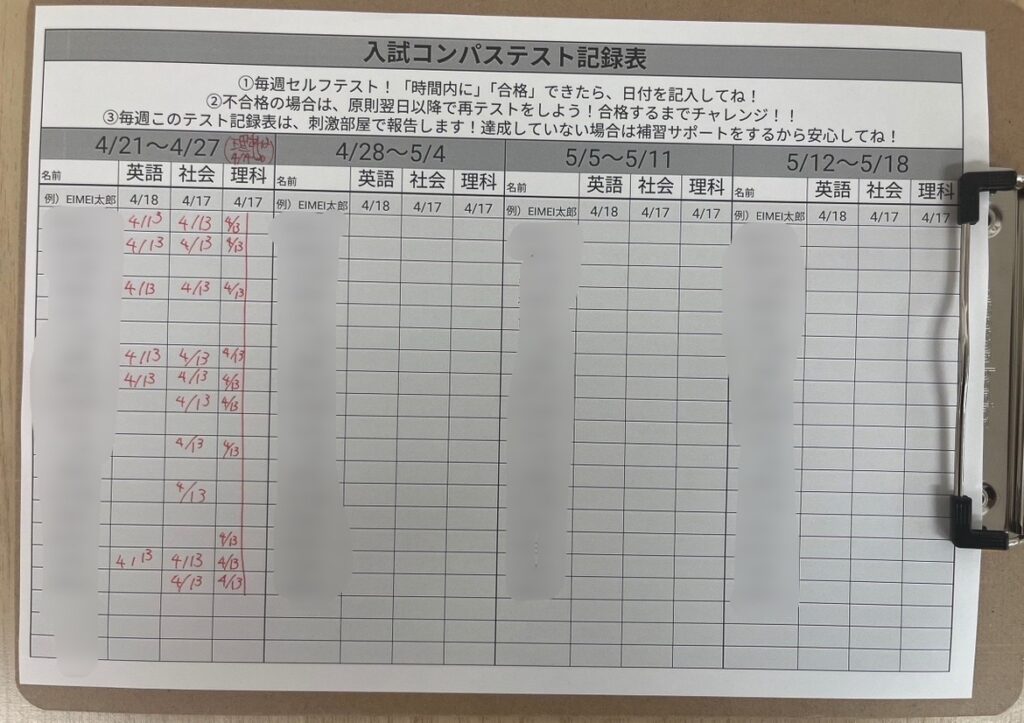 入試コンパステスト記録表
①毎週セルフテスト！「時間内に」「合格」できたら、日付を記入してね！
②不合格の場合は、原則翌日以降で再テストをしよう！合格するまでチャレンジ！！
③毎週このテスト記録表は、刺激部屋で報告します！達成していない場合は補習サポートをするから安心してね！
4/21～4/27 4/28～5/4 5/5～5/11 5/12～5/18
名前 英語 社会 理科 名前 英語 社会 理科 名前 英語 社会 理科 名前 英語 社会 理科
例）EIMEI太郎 4/18 4/17 4/17 例）EIMEI太郎 4/18 4/17 4/17 例）EIMEI太郎 4/18 4/17 4/17 例）EIMEI太郎 4/18 4/17 4/17
4/13 4/13 4/13
4/13 4/13 4/13
4/13 4/13 4/13
4/13 4/13 4/13
4/13 4/13 4/13
4/13 4/13
4/13 4/13
4/13
4/13
4/13 4/13 4/13
4/13 4/13